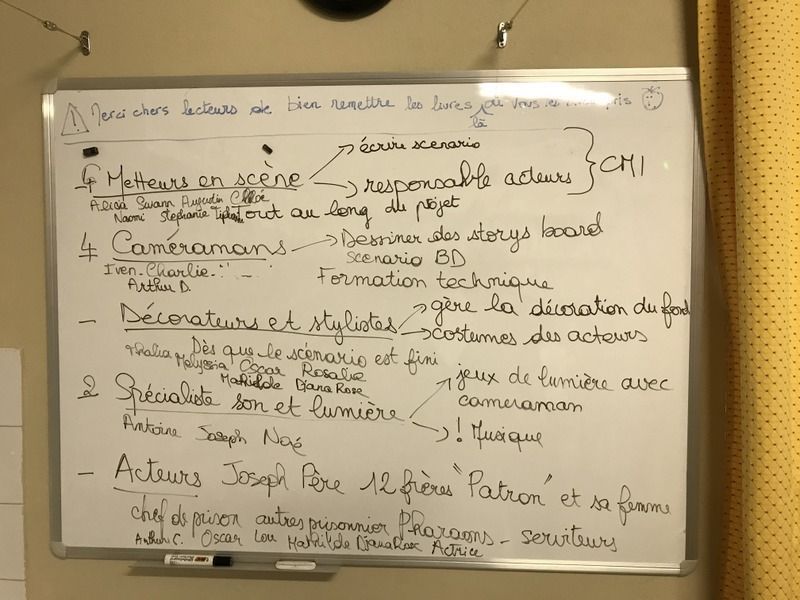 Merci chers lecteurs de bien remettre les livres là où vous les avez pris
4 Metteurs en scène → écrire scenario
→ responsable acteurs } CM1
Alisa Swann Augustin Chloé
Naomi Stephanie
Tout au long du projet
4 Caméramans → Dessiner des storys board
scenario BD
Iven - Charlie -
Arthur D.
Formation technique
- Décorateurs et stylistes → gère la décoration du fond
→ costumes des acteurs
Dès que le scénario est fini
Thalia Melyssia Oscar Rosalie
Mathilde Djana Rose
2 Spécialiste son et lumière → jeux de lumière avec
cameraman
→ ! Musique
Antoine Joseph Noé
- Acteurs Joseph Père 12 frères "Patron" et sa femme
chef de prison autres prisonnier Pharaons - serviteurs
Arthur C. Oscar Lou Mathilde Djana Rose Actrice